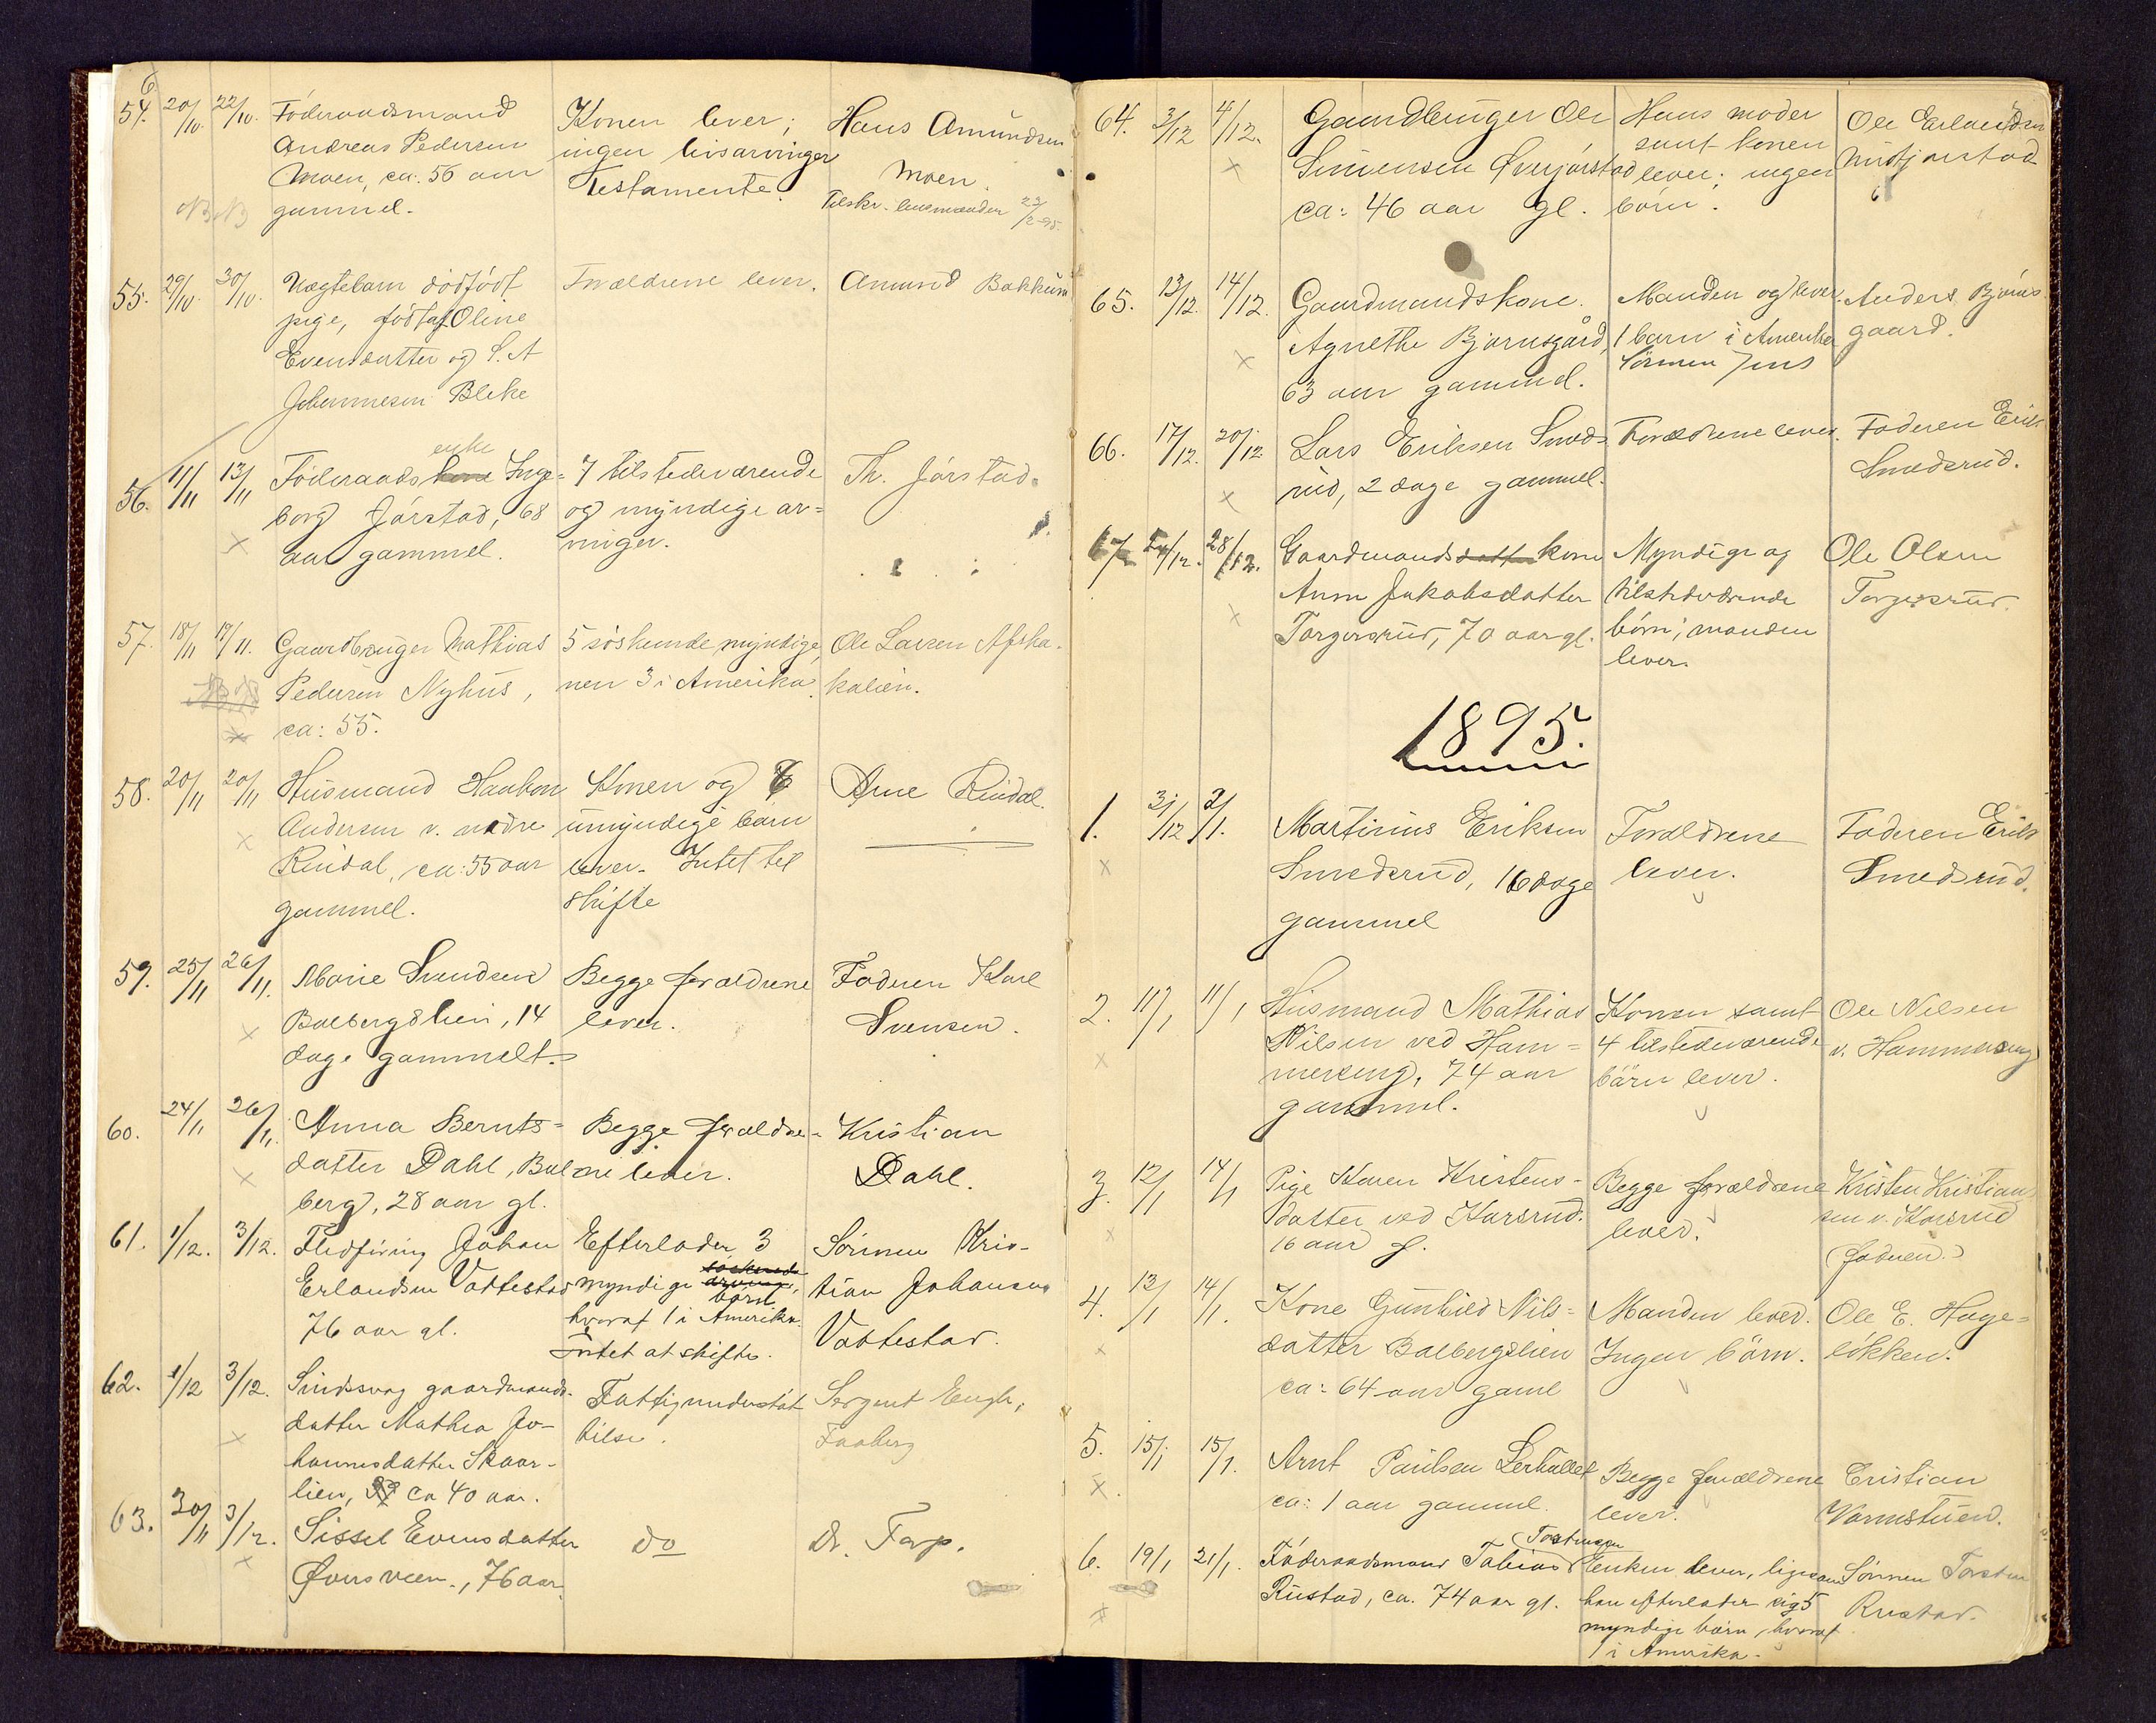 6
54. 20/10. 22/10. Föderaadsmand Konen lever; Hans Amundsen
Andreas Pedersen ingen livsarvinger Moen.
Moen, ca. 56 aar Testamente. Tilskr. lensmanden 22/2-95.
NB NB gammel.
55. 29/10. 30/10. Uægtebarn dödfödt Forældrene lever. Amund Bakkum
pige, född af Oline
Evensdatter og S. A
Johannesen Bleke
56. 11/11 13/11 Föderaads kone enke Inge= 7 tilstedeværende Th. Jörstad.
borg Jörstad, 68 og myndige ar=
aar gammel. vinger.
57. 18/11 19/11. Gaardbruger Mathias 5 söskende myndige, Ole Larsen Afska-
Pedersen Nyhus, men 3 i Amerika kalien.
ca: 55.
58. 20/11 20/11 Husmand Haakon Konen og 6 Arne Rindal.
Andersen v. nedre umyndige barn
Rindal, ca: 55 aar lever. Intet til
gammel. skifte
59. 25/11 26/11. Marie Svendsen Begge forældrene Faderen Karl
Balbergslien, 14 lever. Svensen.
dage gammelt.
60. 24/11 26/11. Anna Bernts= Begge forældre= Kristian
datter Dahl, Bal ne lever. Dahl.
berg, 28 aar gl.
61. 1/12. 3/12. Fledföring Johan Efterlader 3 Sönnen Kris-
Erlandsen Vattestad myndige söskende arvinger, börn tian Johansen
76 aar gl. hvoraf 1 i Amerika. Vattestad.
Intet at skifte.
62. 1/12 3/12. Sindssvag gaardmands- Fattigunderstöt Sergent Engh,
datter Mathea Jo- telse. Faaberg
hannesdatter Skaar-
lien, ca 40 aar.
63. 30/11 3/12. Sissel Evensdatter do Dr. Farp.
Översveen., 76 aar
64. 3/12 4/12. Gaardbruger Ole Hans moder Ole Erlandsen
Simensen Överjörstad samt konen Midtjörstad
ca: 46 aar gl. lever; ingen
börn.
65. 13/12. 14/12. Gaardmandskone Manden og lever. Anders Björns-
Agnethe Bjørnsgård, 1 barn i Amerika gaard.
63 aar gammel. Sönnen Jens
66. 17/12. 20/12 Lars Eriksen Smeds- Forældrene lever. Faderen Erik
rud, 2 dage gammel. Smedsrud.
67. 27/12. 28/12. Gaardmandsdatter kone Myndige og Ole Olsen
Anne Jakobsdatter tilstedeværende Torgersrud.
Torgersrud, 70 aar gl. börn; manden
lever.
1895.
1. 31/12 2/1. Martinius Eriksen Forældrene Faderen Erik
Smedsrud, 16 dage lever. Smedsrud.
gammel
2. 11/1 11/1 Husmand Mathias Konen samt Ole Nilsen
Nilsen ved Ham= 4 tilstedeværende v. Hammereng
mereng, 74 aar börn lever.
gammel.
3. 12/1 14/1 Pige Karen Kristens- Begge forældrene Kristen Kristian
datter ved Korsrud. lever. sen v. Korsrud
16 aar gl. (faderen.)
4. 13/1 14/1. Kone Gunhild Nils= Manden lever. Ole E. Hage=
datter Balbergslien Ingen börn. lökken.
ca: 64 aar gaml
5. 15/1 15/1. Arnt Paulsen Lerhullet Begge forældrene Cristian
ca: 1 aar gammel. lever. Varmstuen.
6. 19/1 21/1. Föderaadsmand Tobias Torstensen Enken lever, ligesom Sönnen Torsten
Rustad, ca. 74 aar gl. han efterlader sig 5 Rustad.
myndige börn, hvoraf
1 i Amerika.